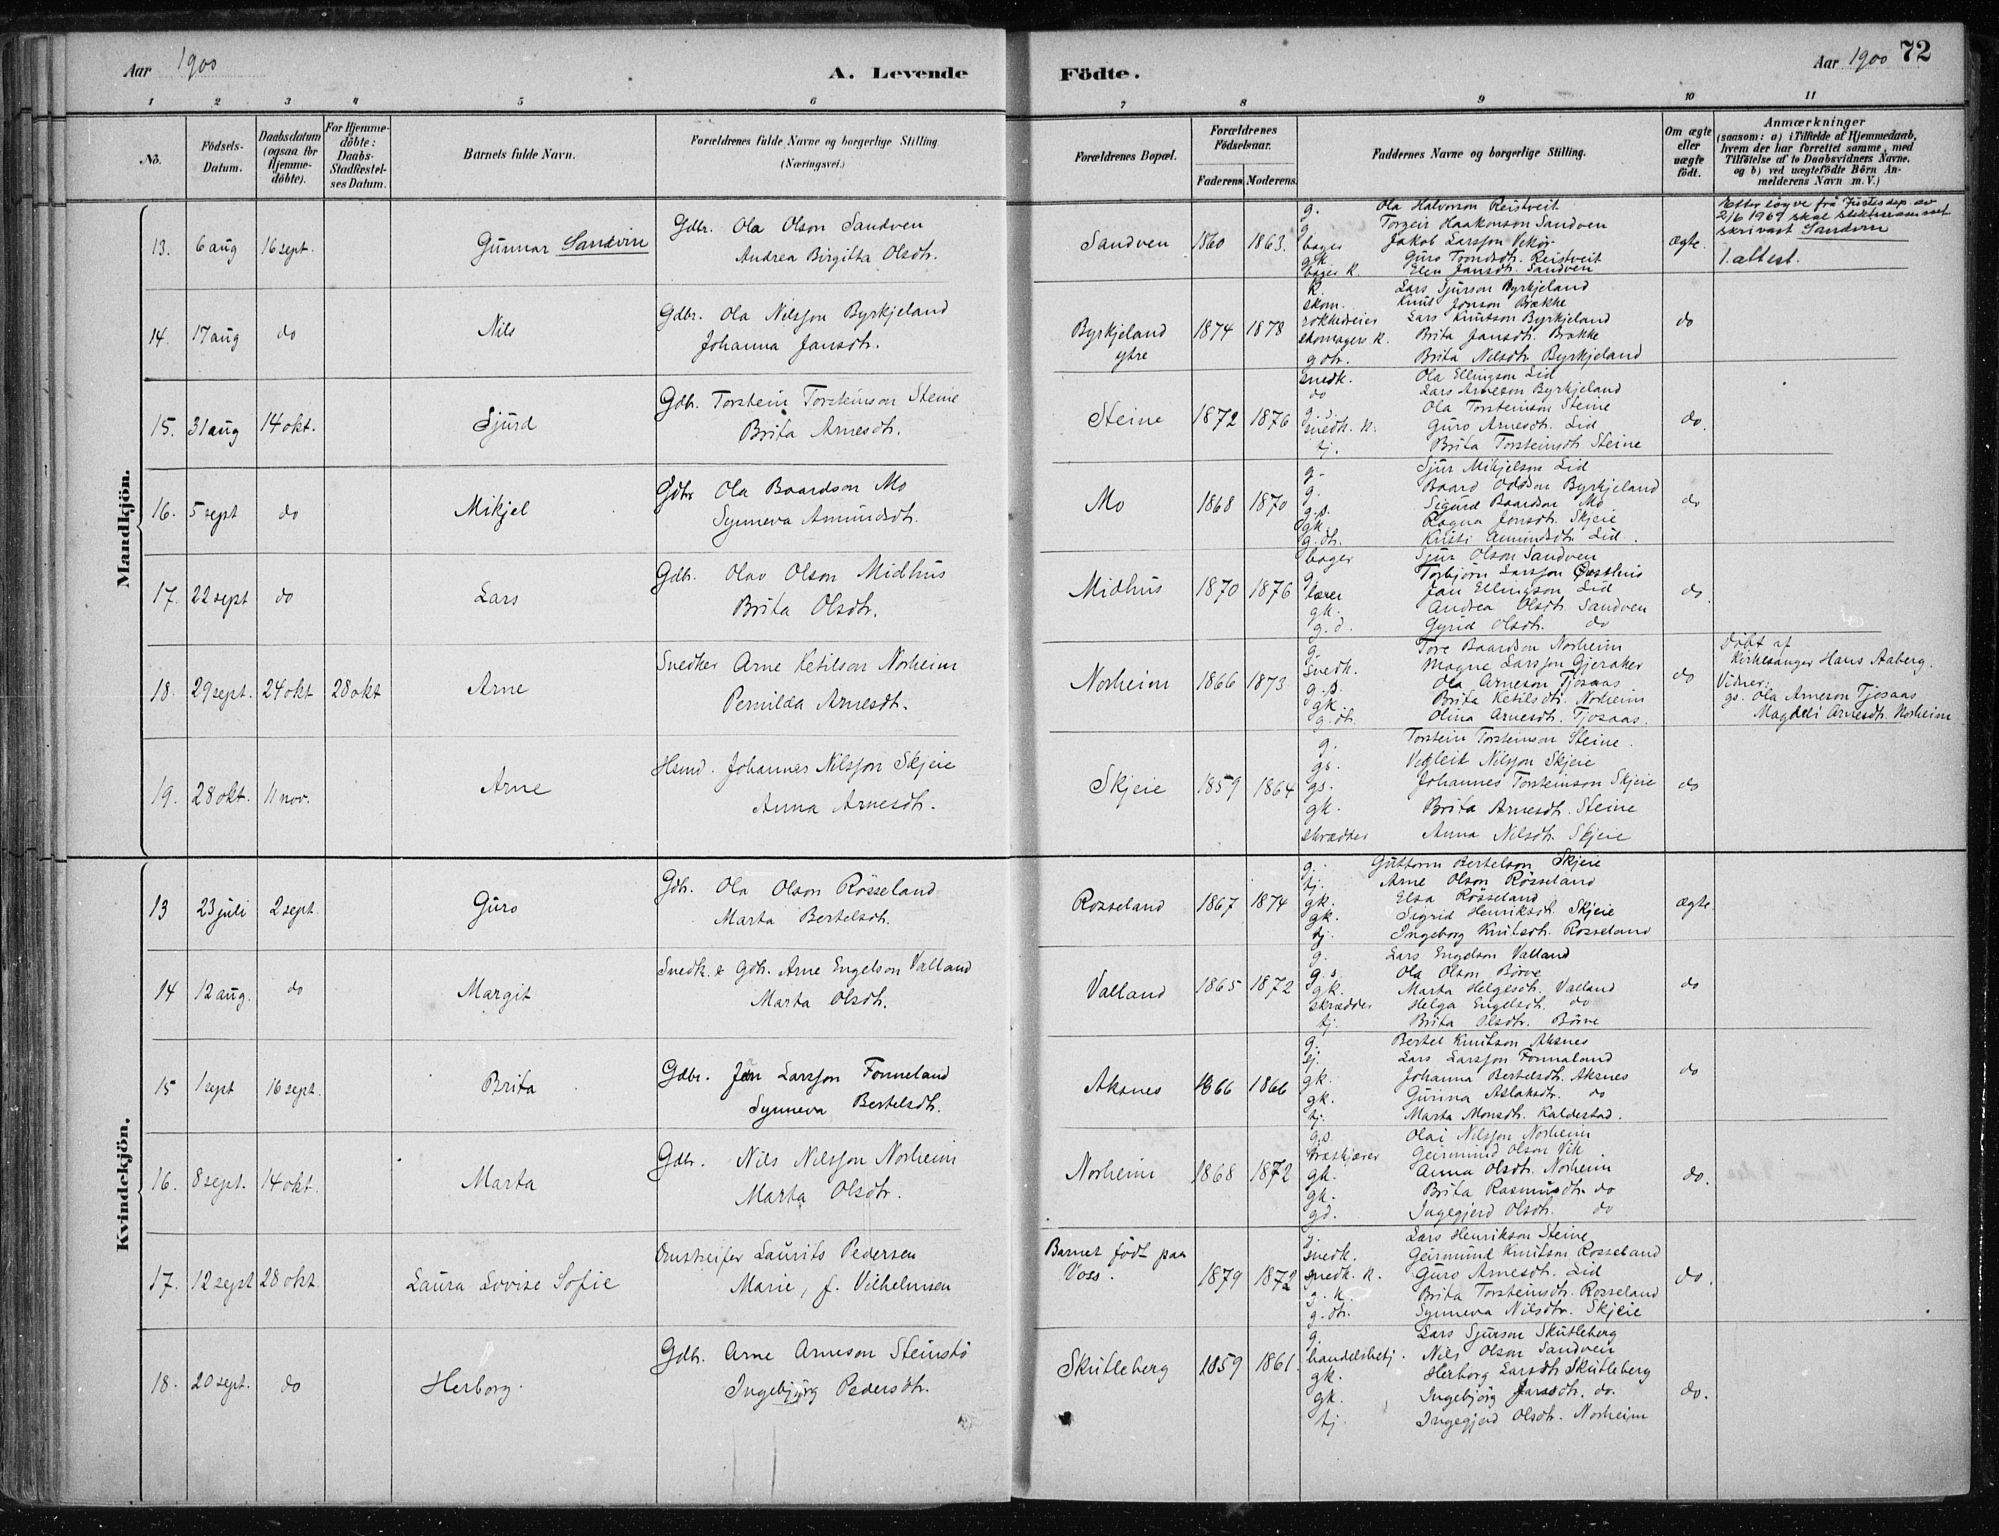 Aar 1900 A. Levende Födte. Aar 1900 72
1 2 3 4 5 6 7 8 9 10 11
No. Födsels-Datum. Daabsdatum (ogsaa for Hjemme-döbte). For Hjemme-döbte: Daabs-Stadfæstel-ses Datum. Barnets fulde Navn. Forældrenes fulde Navne og borgerlige Stilling (Næringsvei.) Forældrenes Bopæl. Forældrenes Födselsaar. Faderens Moderens. Faddernes Navne og borgerlige Stilling. Om ægte eller uægte födt. Anmærkninger (saasom: a) i Tilfælde af Hjemmedaab, hvem der har forrettet samme, med Tilföielse af to Daabsvidners Navne, og b) ved uægtefödte Börn An-melderens Navn m. V.)
Mandkjön.
13. 6 aug 16 sept. Gunnar Sandvin
Gdbr. Ola Olson Sandven
Andrea Birgitta Olsdtr.
Sandven 1860 1863.
g. Ola Halvorson Reistveit
g Torgeir Haakonson Sandven
bager Jakob Larsson Vikör
gk. Guro Trondsdtr. Reistveit
bager k. Elen Jansdtr. Sandven
ægte.
Etter løyve frå Justisdep. av
2/6 1969 skal slektsnamnet
skrivast Sandvin
1. attest.
14. 17 aug do Nils
Gdbr. Ola Nilsson Byrkjeland
Johanna Jansdtr.
Byrkjeland
ytre
1874 1878
K. Lars Sjurson Byrkjeland
skom. Knut Jonson Brække
rokkedreier Lars Knutson Byrkjeland
skomagers k. Brita Jansdtr. Brække
gdtr. Brita Nilsdtr Byrkjeland
do
15. 31 aug 14 okt. Sjurd
Gdb. Torstein Torsteinson Steine
Brita Arnesdtr.
Steine 1872 1876
snedk. Ola Ellingson Lid
do Lars Arneson Byrkjeland
g. Ola Torsteinson Steine
snedk. k. Guro Arnesdt. Lid
tj. Brita Torsteinsdt Steine
do.
16. 5 sept do Mikjel
Gdbr Ola Baardson Mo
Synneva Amundsdtr.
Mo 1868 1870
g. Sjur Mikjelson Lid
g. Baard Oddson Byrkjeland
g.s. Sigurd Baardson Mo
gk Ragna Jonsdtr. Skjeie
g.dtr. Kristi Amundsdtr Lid.
do
17. 22 sept do Lars
Gdbr. Olav Olson Midhus
Brita Olsdtr.
Midhus 1870 1876
bager Sjur Olson Sandven
g. Torbjörn Larsson Øvsthus
lærer Jan Ellingson Lid
gk. Andrea Olsdtr. Sandven
g.d. Gyrid Olsdtr. do
do.
18. 29 sept. 24 okt 28 okt Arne
Snedker Arne Ketilson Norheim
Pernilda Arnesdtr.
Norheim 1866 1873
g. Tore Baardson Norheim
snedk. Magne Larsson Gjeraker
g.s. Ola Arneson Tjosaas
gk. Brita Ketilsdtr. Norheim
g.dt. Olina Arnesdtr. Tjosaas.
do
döbt af
Kirkesanger Hans Aaberg.
Vidner:
gs. Ola Arneson Tjosaas
Magdeli Arnesdtr. Norheim
19. 28 okt. 11 nov. Arne
Hsmd. Johannes Nilsson Skjeie
Anna Arnesdtr.
Skjeie 1859 1864
g. Torstein Torsteinson Steine.
gs. Vegleit Nilsson Skjeie
gs. Johannes Torsteinson Skjeie
gk. Brita Arnesdtr. Steine
skrædder Anna Nilsdtr. Skjeie
do
Kvindekjön.
13 23 juli 2 sept. Guro
Gdb. Ola Olson Rösseland
Marta Bertelsdtr.
Rosseland 1867 1874
g. Guttorm Bertelson Skjeie
tj. Arne Olson Rösseland
gk. Elsa Rösseland
gk. Sigrid Henriksdt. Skjeie
tj. Ingeborg Knutsdtr. Rosseland
ægte.
14 12 aug. do Margit
Snedk. & Gdb. Arne Engelson Valland
Marta Olsdtr.
Valland 1865 1872
g. Lars Engelson Valland
g.s. Ola Olson Börve
gk. Marta Helgesdtr. Valland
skrædder Helga Engelsdtr. do
tj. Brita Olsdtr. Börve
do
15 1 sept 16 sept. Brita
Gdbr. Jon Larsson Fonneland
Synneva Bertelsdtr.
Aksnes 1866 1866
g. Bertel Knutson Aksnes
g. Lars Larsson Fonnaland
gk. Johanna Bertelsdtr. Aksnes
gk. Gurina Aslaksdtr. do
tj. Marta Monsdtr. Kaldestad.
do
16. 8 sept. 14 okt. Marta
Gdbr. Nils Nilsson Norheim
Marta Olsdtr.
Norheim 1868 1872
g.s. Olai Nilsson Norheim
træskjærer Geirmund Olson Vik
gk. Anna Olsdtr. Norheim
gk. Brita Rasmusdtr. do
gd. Ingegjerd Olsdtr. do
do.
17. 12 sept 28 okt. Laura Lovise Sofie
Omstreifer Laurits Pedersen
Marie, f. Vilhelmsen
Barnet födt paa
Voss.
1879 1872
g. Lars Henrikson Steine
snedk. Geirmund Knutson Rosseland
snedk. k. Guro Arnesdtr. Lid
g.k. Brita Torsteinsdt. Rosseland
g.dtr. Synneva Nilsdtr. Skjeie
do.
18. 20 sept. do Herborg.
Gdb. Arne Arneson Steinstö
Ingebjörg Pedersdtr.
Skutleberg 1859 1861.
g. Lars Sjurson Skutleberg
handelsbetj. Nils Olson Sandven
gk. Herborg Larsdtr Skutleberg
gk. Ingebjörg Larsdtr. do.
tj Ingegjerd Olsdtr. Norheim
do.